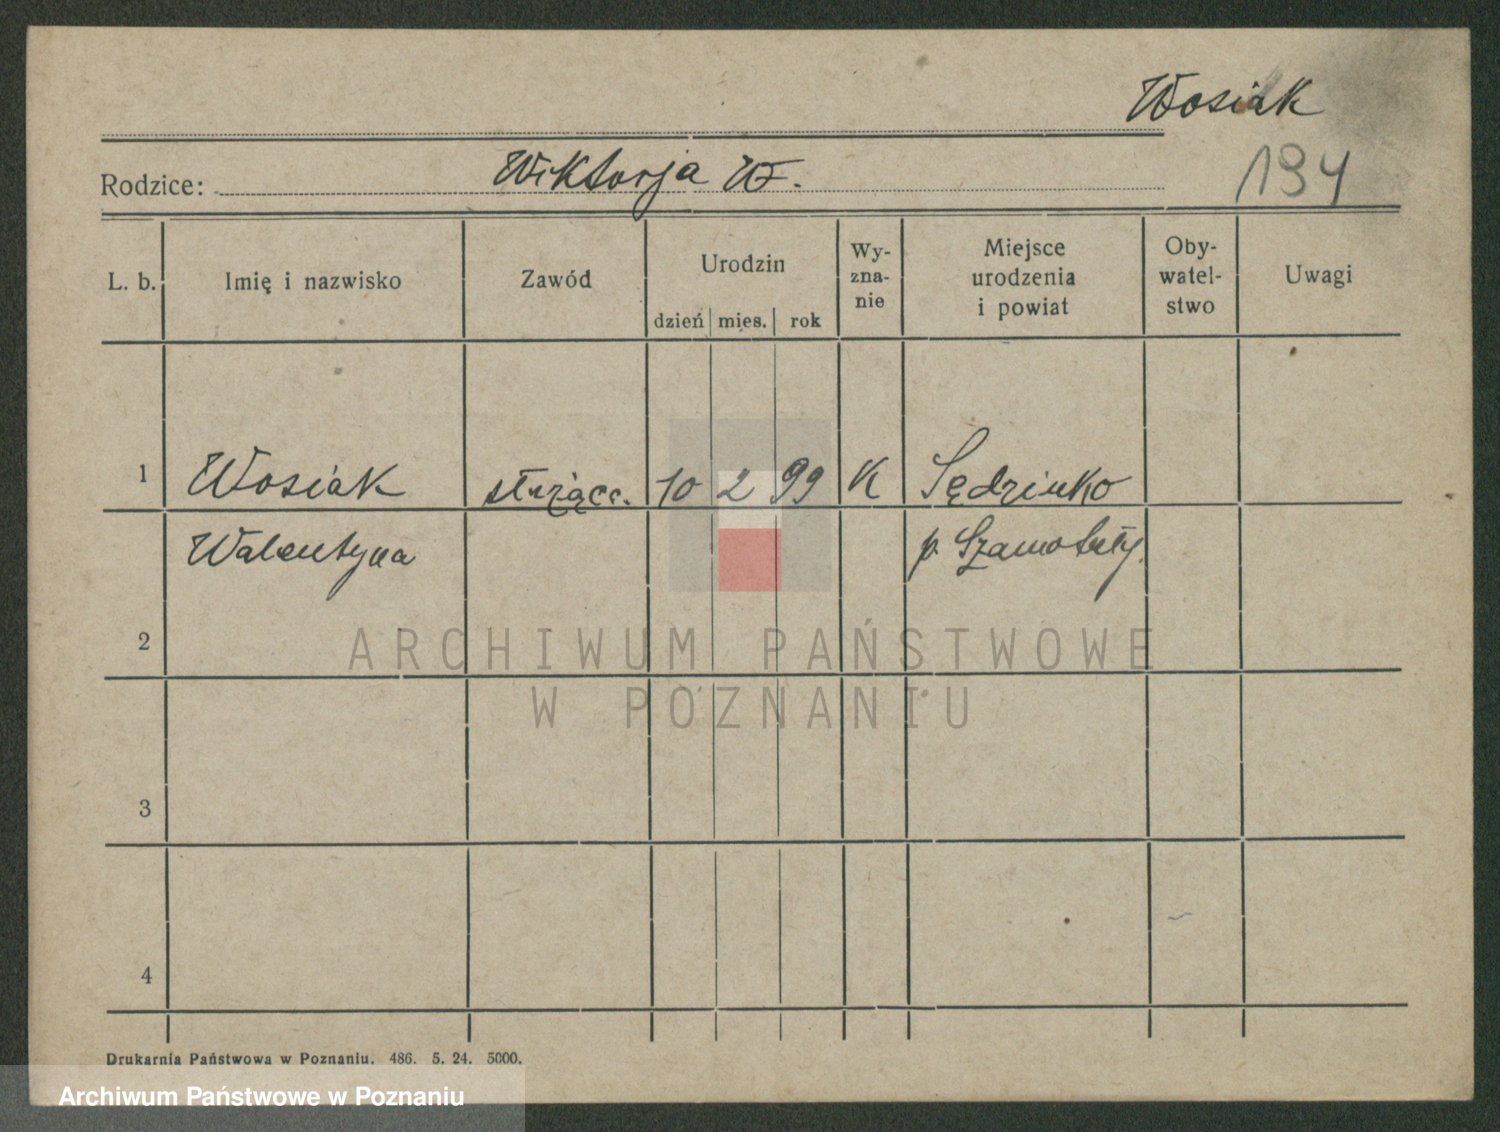 Wosiak
Rodzice: Wiktorja W.
194
L. b. Imię i nazwisko Zawód Urodzin dzień mies. rok Wy-zna-nie Miejsce urodzenia i powiat Oby-watel-stwo Uwagi
1 Wosiak służąca. 10 2 99 K Sędzinko
Walentyna p. Szamotuły.
2
3
4
ARCHIWUM PAŃSTWOWE
W POZNANIU
Drukarnia Państwowa w Poznaniu. 486. 5. 24. 5000.
Archiwum Państwowe w Poznaniu